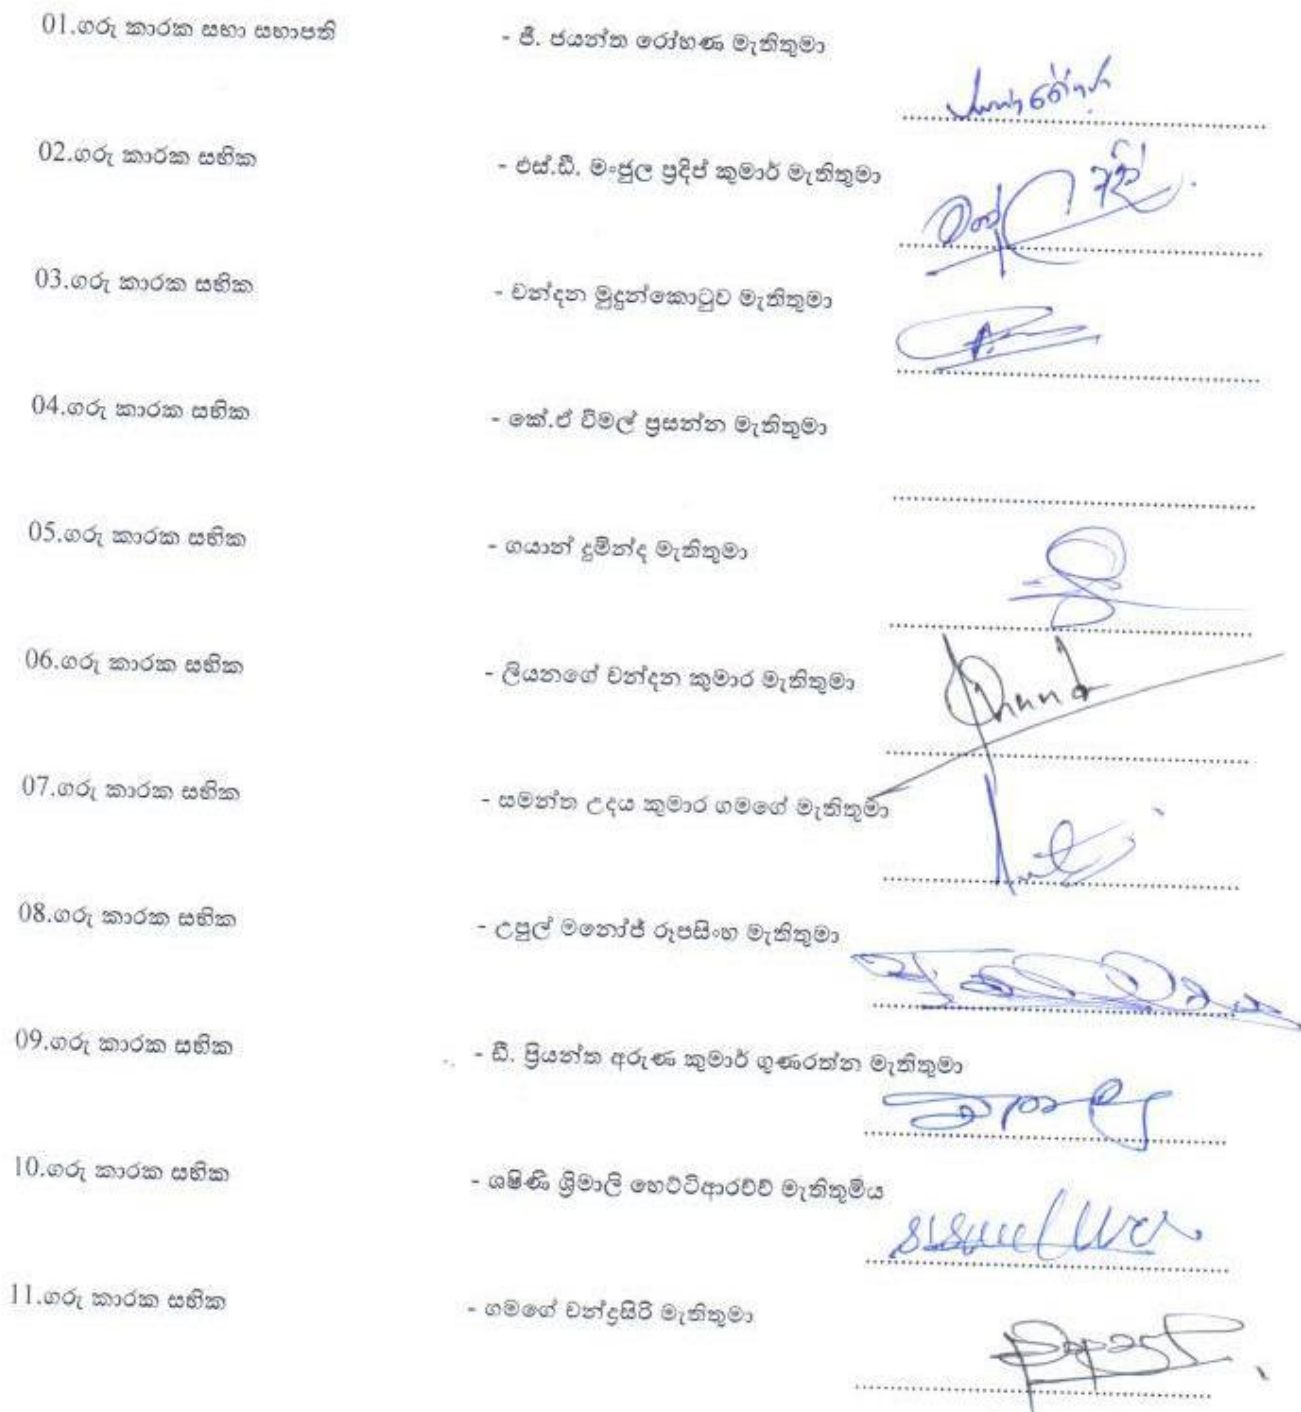 01.ගරු කාරක සභා සභාපති - ජී. ජයන්ත රෝහණ මැතිතුමා
02.ගරු කාරක සභික - එස්.ඩී. මංජුල ප්‍රදිප් කුමාර් මැතිතුමා
03.ගරු කාරක සභික - චන්දන මුදුන්කොටුව මැතිතුමා
04.ගරු කාරක සභික - කේ.ඒ විමල් ප්‍රසන්න මැතිතුමා
05.ගරු කාරක සභික - ගයාන් දුමින්ද මැතිතුමා
06.ගරු කාරක සභික - ලියනගේ චන්දන කුමාර මැතිතුමා
07.ගරු කාරක සභික - සමන්ත උදය කුමාර ගමගේ මැතිතුමා
08.ගරු කාරක සභික - උපුල් මනෝජ් රූපසිංහ මැතිතුමා
09.ගරු කාරක සභික - ඩී. ප්‍රියන්ත අරුණ කුමාර් ගුණරත්න මැතිතුමා
10.ගරු කාරක සභික - ශෂිණි ශ්‍රිමාලි හෙට්ටිආරච්චි මැතිතුමිය
11.ගරු කාරක සභික - ගමගේ චන්ද්‍රසිරි මැතිතුමා